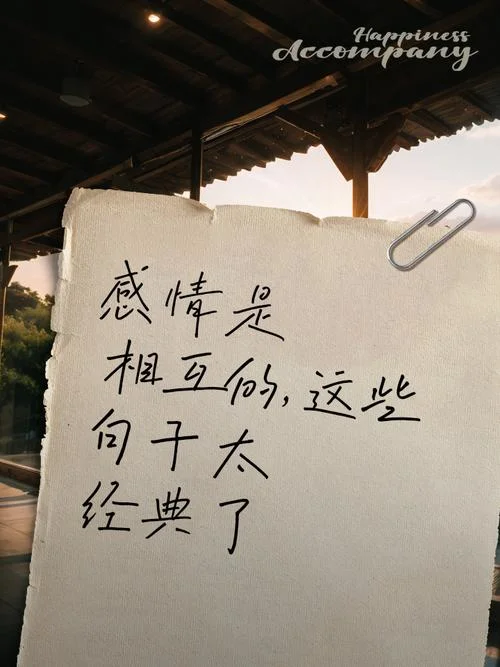 Happiness
Accompany
感情是
相互的,这些
句子太
经典了